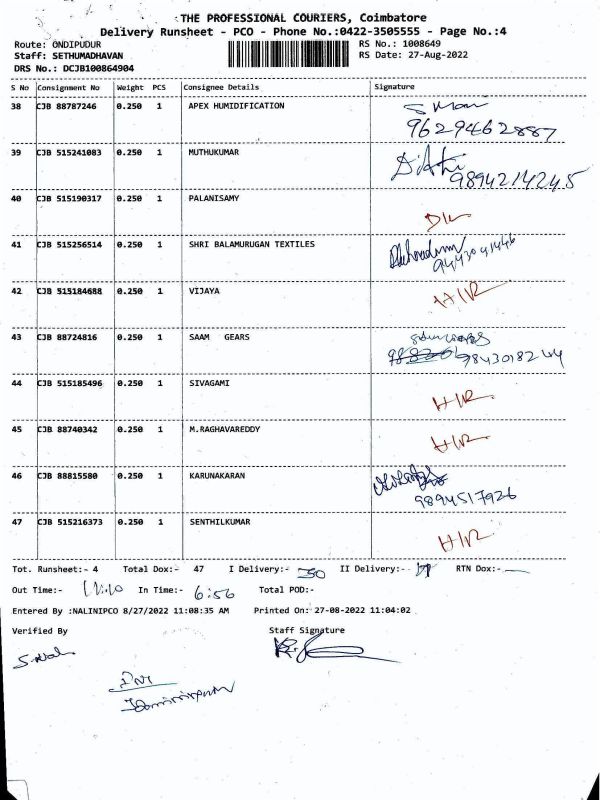 THE PROFESSIONAL COURIERS, Coimbatore
Delivery Runsheet - PCO - Phone No.:0422-3505555 - Page No.:4
Route: ONDIPUDUR RS No.: 1008649
Staff: SETHUMADHAVAN RS Date: 27-Aug-2022
DRS No.: DCJB100864904
S No Consignment No Weight PCS Consignee Details Signature
38 CJB 88787246 0.250 1 APEX HUMIDIFICATION
9629462887
39 CJB 515241083 0.250 1 MUTHUKUMAR
9894214245
40 CJB 515190317 0.250 1 PALANISAMY
41 CJB 515256514 0.250 1 SHRI BALAMURUGAN TEXTILES
9443041446
42 CJB 515184688 0.250 1 VIJAYA
43 CJB 88724816 0.250 1 SAAM GEARS
44 CJB 515185496 0.250 1 SIVAGAMI
45 CJB 88740342 0.250 1 M.RAGHAVAREDDY
46 CJB 88815580 0.250 1 KARUNAKARAN
9894517926
47 CJB 515216373 0.250 1 SENTHILKUMAR
Tot. Runsheet:- 4 Total Dox:- 47 I Delivery:- 30 II Delivery:- 17 RTN Dox:-
Out Time:- 11:10 In Time:- 6:56 Total POD:-
Entered By :NALINIPCO 8/27/2022 11:08:35 AM Printed On: 27-08-2022 11:04:02
Verified By Staff Signature